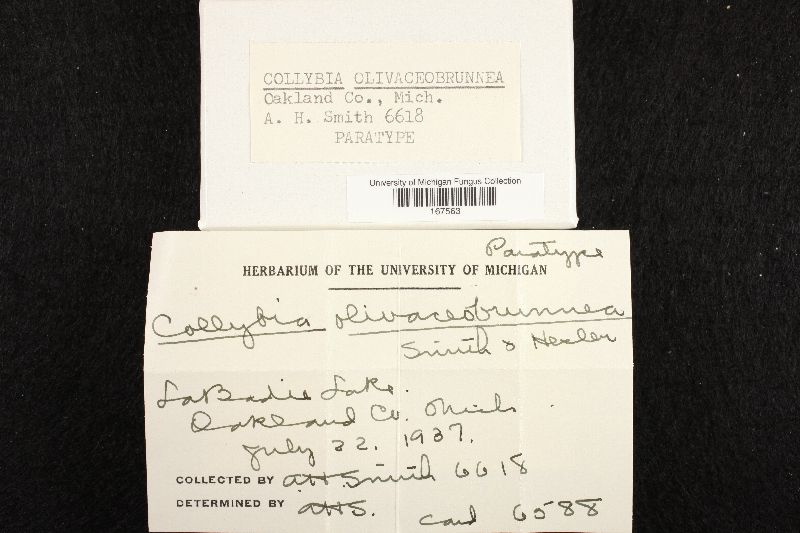 COLLYBIA OLIVACEOBRUNNEA
Oakland Co., Mich.
A. H. Smith 6618
PARATYPE
University of Michigan Fungus Collection
167563
Paratype
HERBARIUM OF THE UNIVERSITY OF MICHIGAN
Collybia olivaceobrunnea
Smith & Hesler
LaBadie Lake.
Oakland Co. Mich.
July 22, 1937.
COLLECTED BY AH Smith 6618
DETERMINED BY AHS.
card 6588